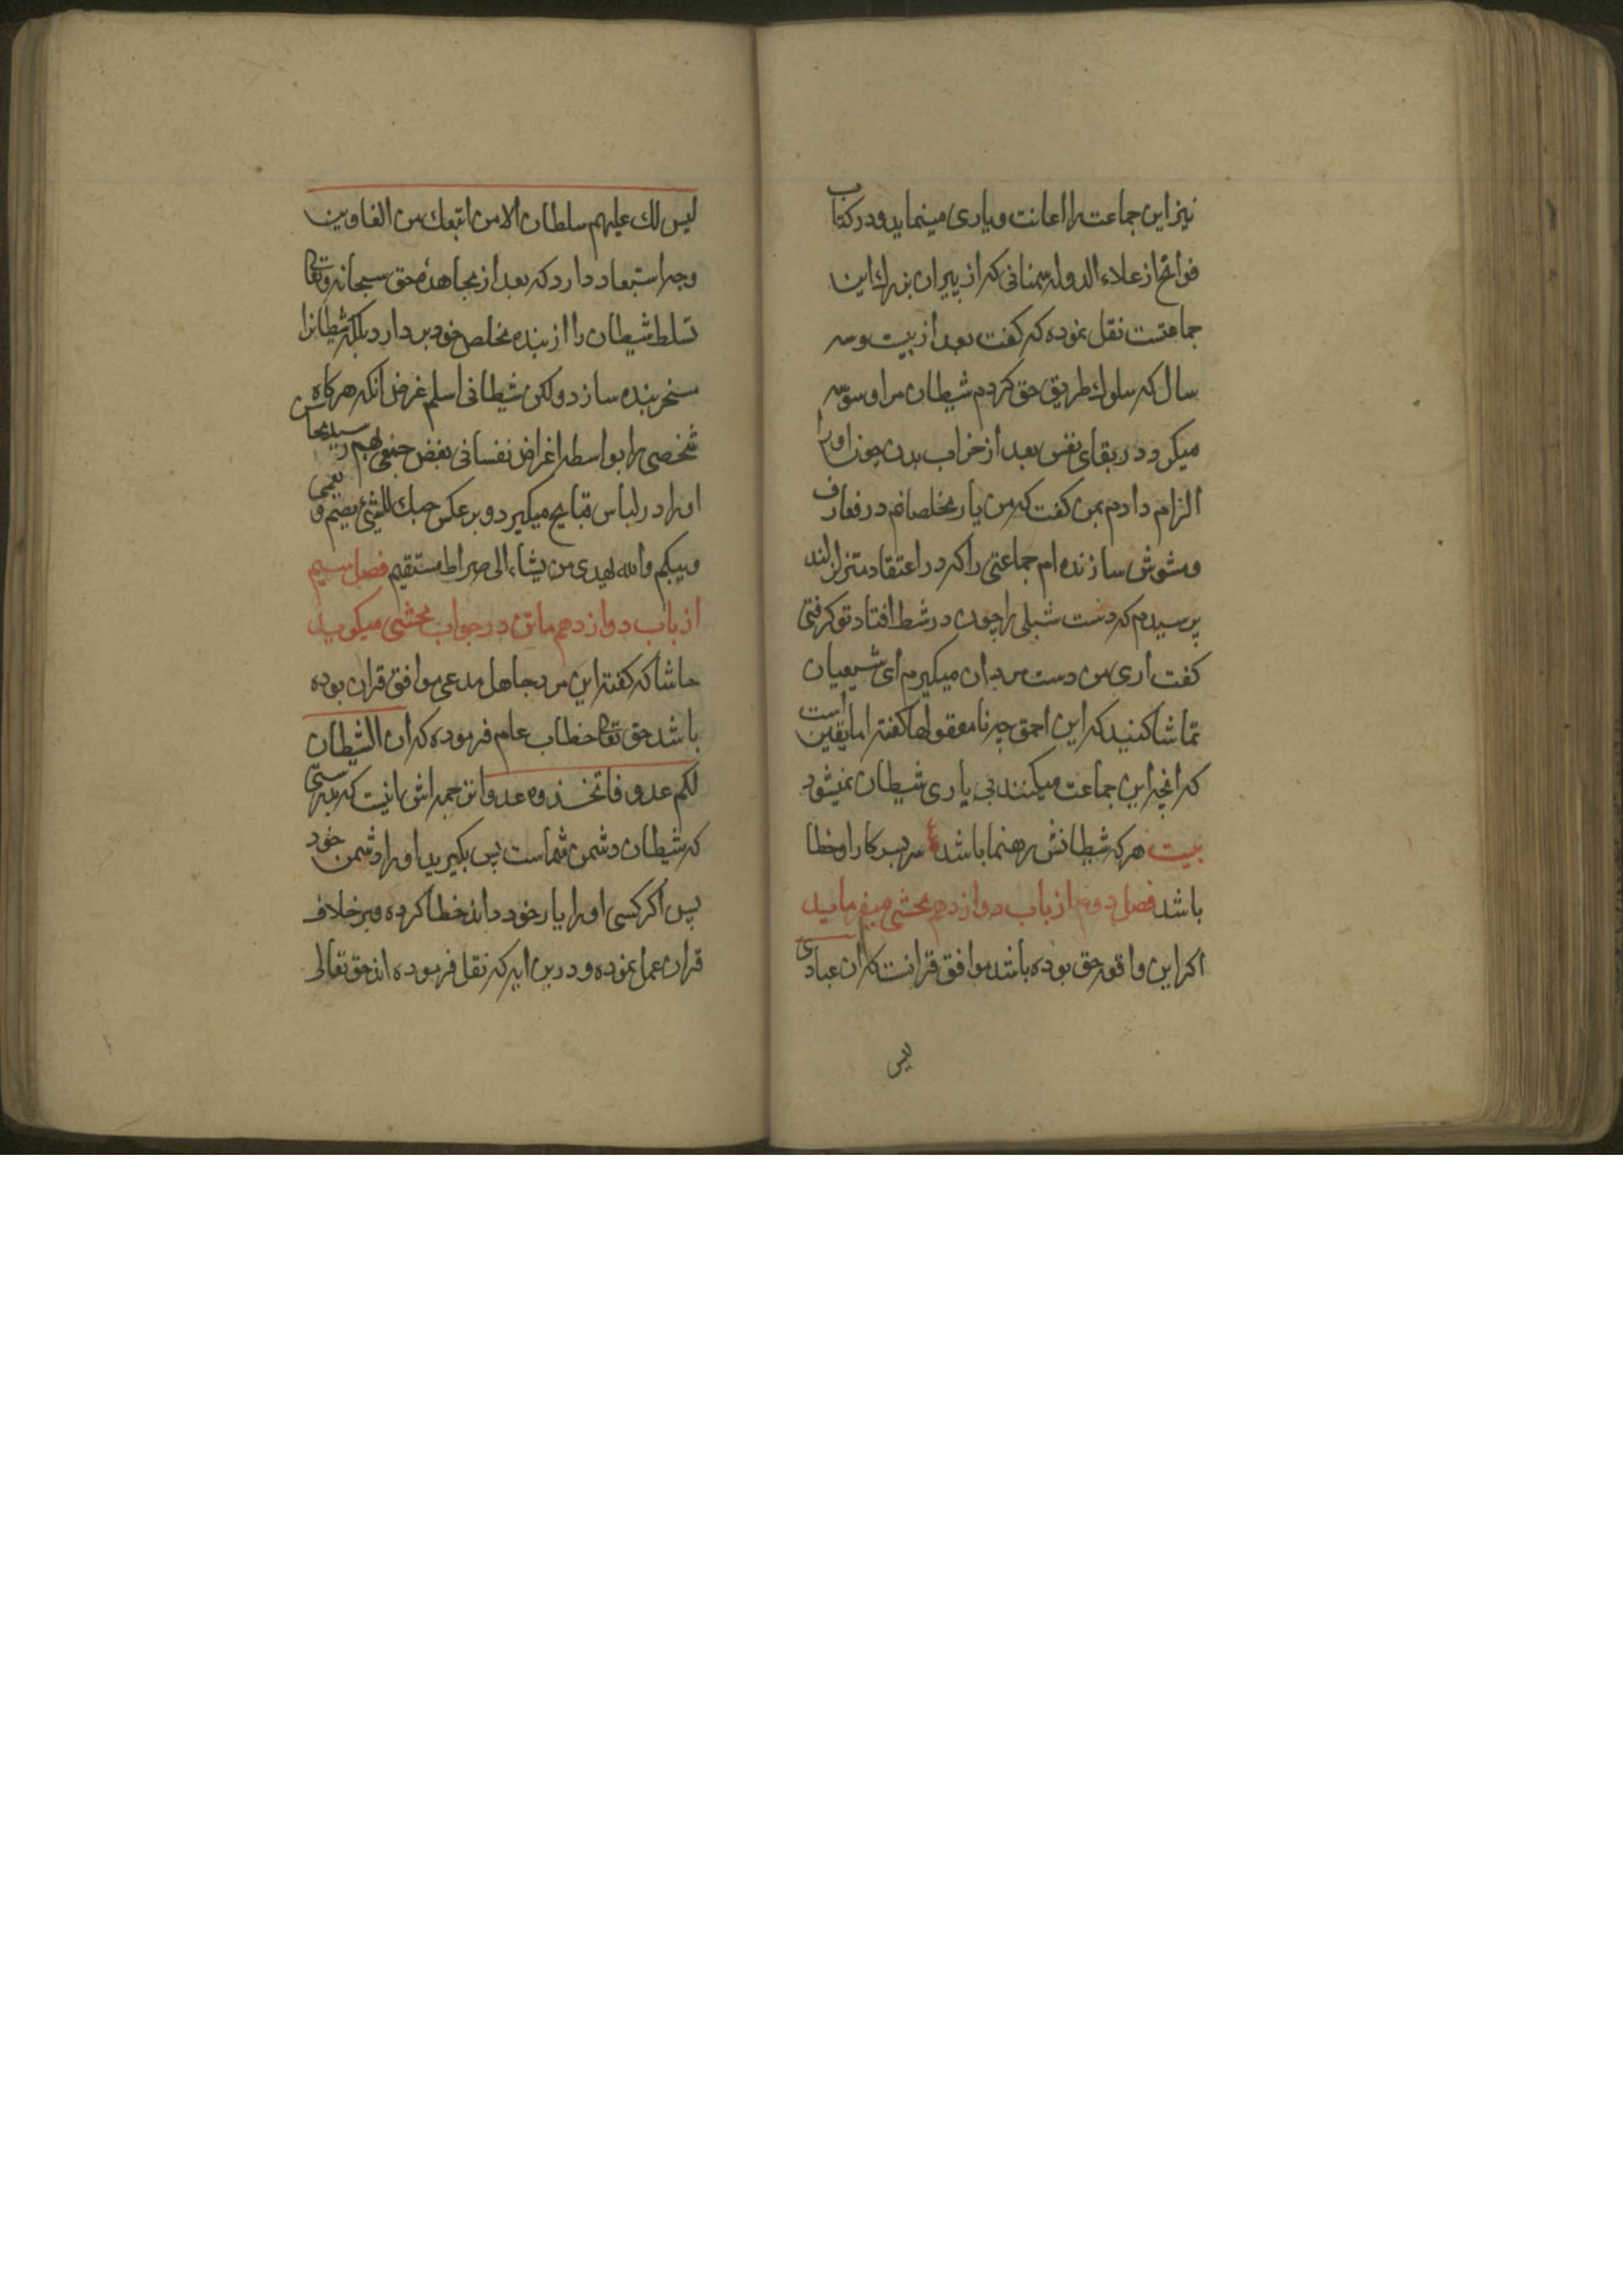 نیز این جماعت را اعانت و یاری مینماید و در کتاب
فواتح از علاء الدوله سمنانی که از پیران بزرك این
جماعتست نقل نموده که کفت بعد از بیست و سه
سال که سلوك طریق حق کردم شیطان مرا وسوسه
میکرد در بقای نفس بعد از خراب بدن چون او را
الزام دادم بمن کفت که من یار مخلصانم در معارف
و مشوش سازنده ام جماعتی را که در اعتقاد متزلزلند
پرسیدم که دست شبلی را چون در شط افتاد تو کرفتی
کفت اری من دست مردان میکیرم ای شیعیان
تماشا کنید که این احمق چه نامعقولها کفته اما یقین است
که انچه این جماعت میکنند بی یاری شیطان نمیشود
بیت هر که شیطانش رهنما باشد ع سر بسر کار او خطا
باشد فصل دوم از باب دوازدهم محشی میفرماید
اکر این واقعه حق بوده باشد موافق قرانست که ان عبادی
لیس
لیس لك علیهم سلطان الا من اتبعك من الغاوین
وجه استبعاد دارد که بعد از مجاهده حق سبحانه وتعالی
تسلط شیطان را از بنده مخلص خود بردارد بلکه شیطانرا
مسخر بنده سازد ولکن شیطانی اسلم غرض انکه هر کاه
شخصی را بواسطه اغراض نفسانی بغض بهم رسید محاسن
او را در لباس قبایح میکیرد و بر عکس حبك للشیئ یعمی و یصم
و یبکم والله یهدی من یشاء الی صراط مستقیم فصل سیم
از باب دوازدهم ماتن در جواب محشی میکوید
حاشا که کفته این مرد جاهل مدعی موافق قران بوده
باشد حق تعالی خطاب عام فرموده که ان الشیطان
لکم عدو فاتخذوه عدوا ترجمه اش اینست که بدرستی
که شیطان دشمن شماست پس بکیرید او را دشمن خود
پس اکر کسی او را یار خود داند خطا کرده و بر خلاف
قران عمل نموده و درین ایه که نقل فرموده اند حق تعالی